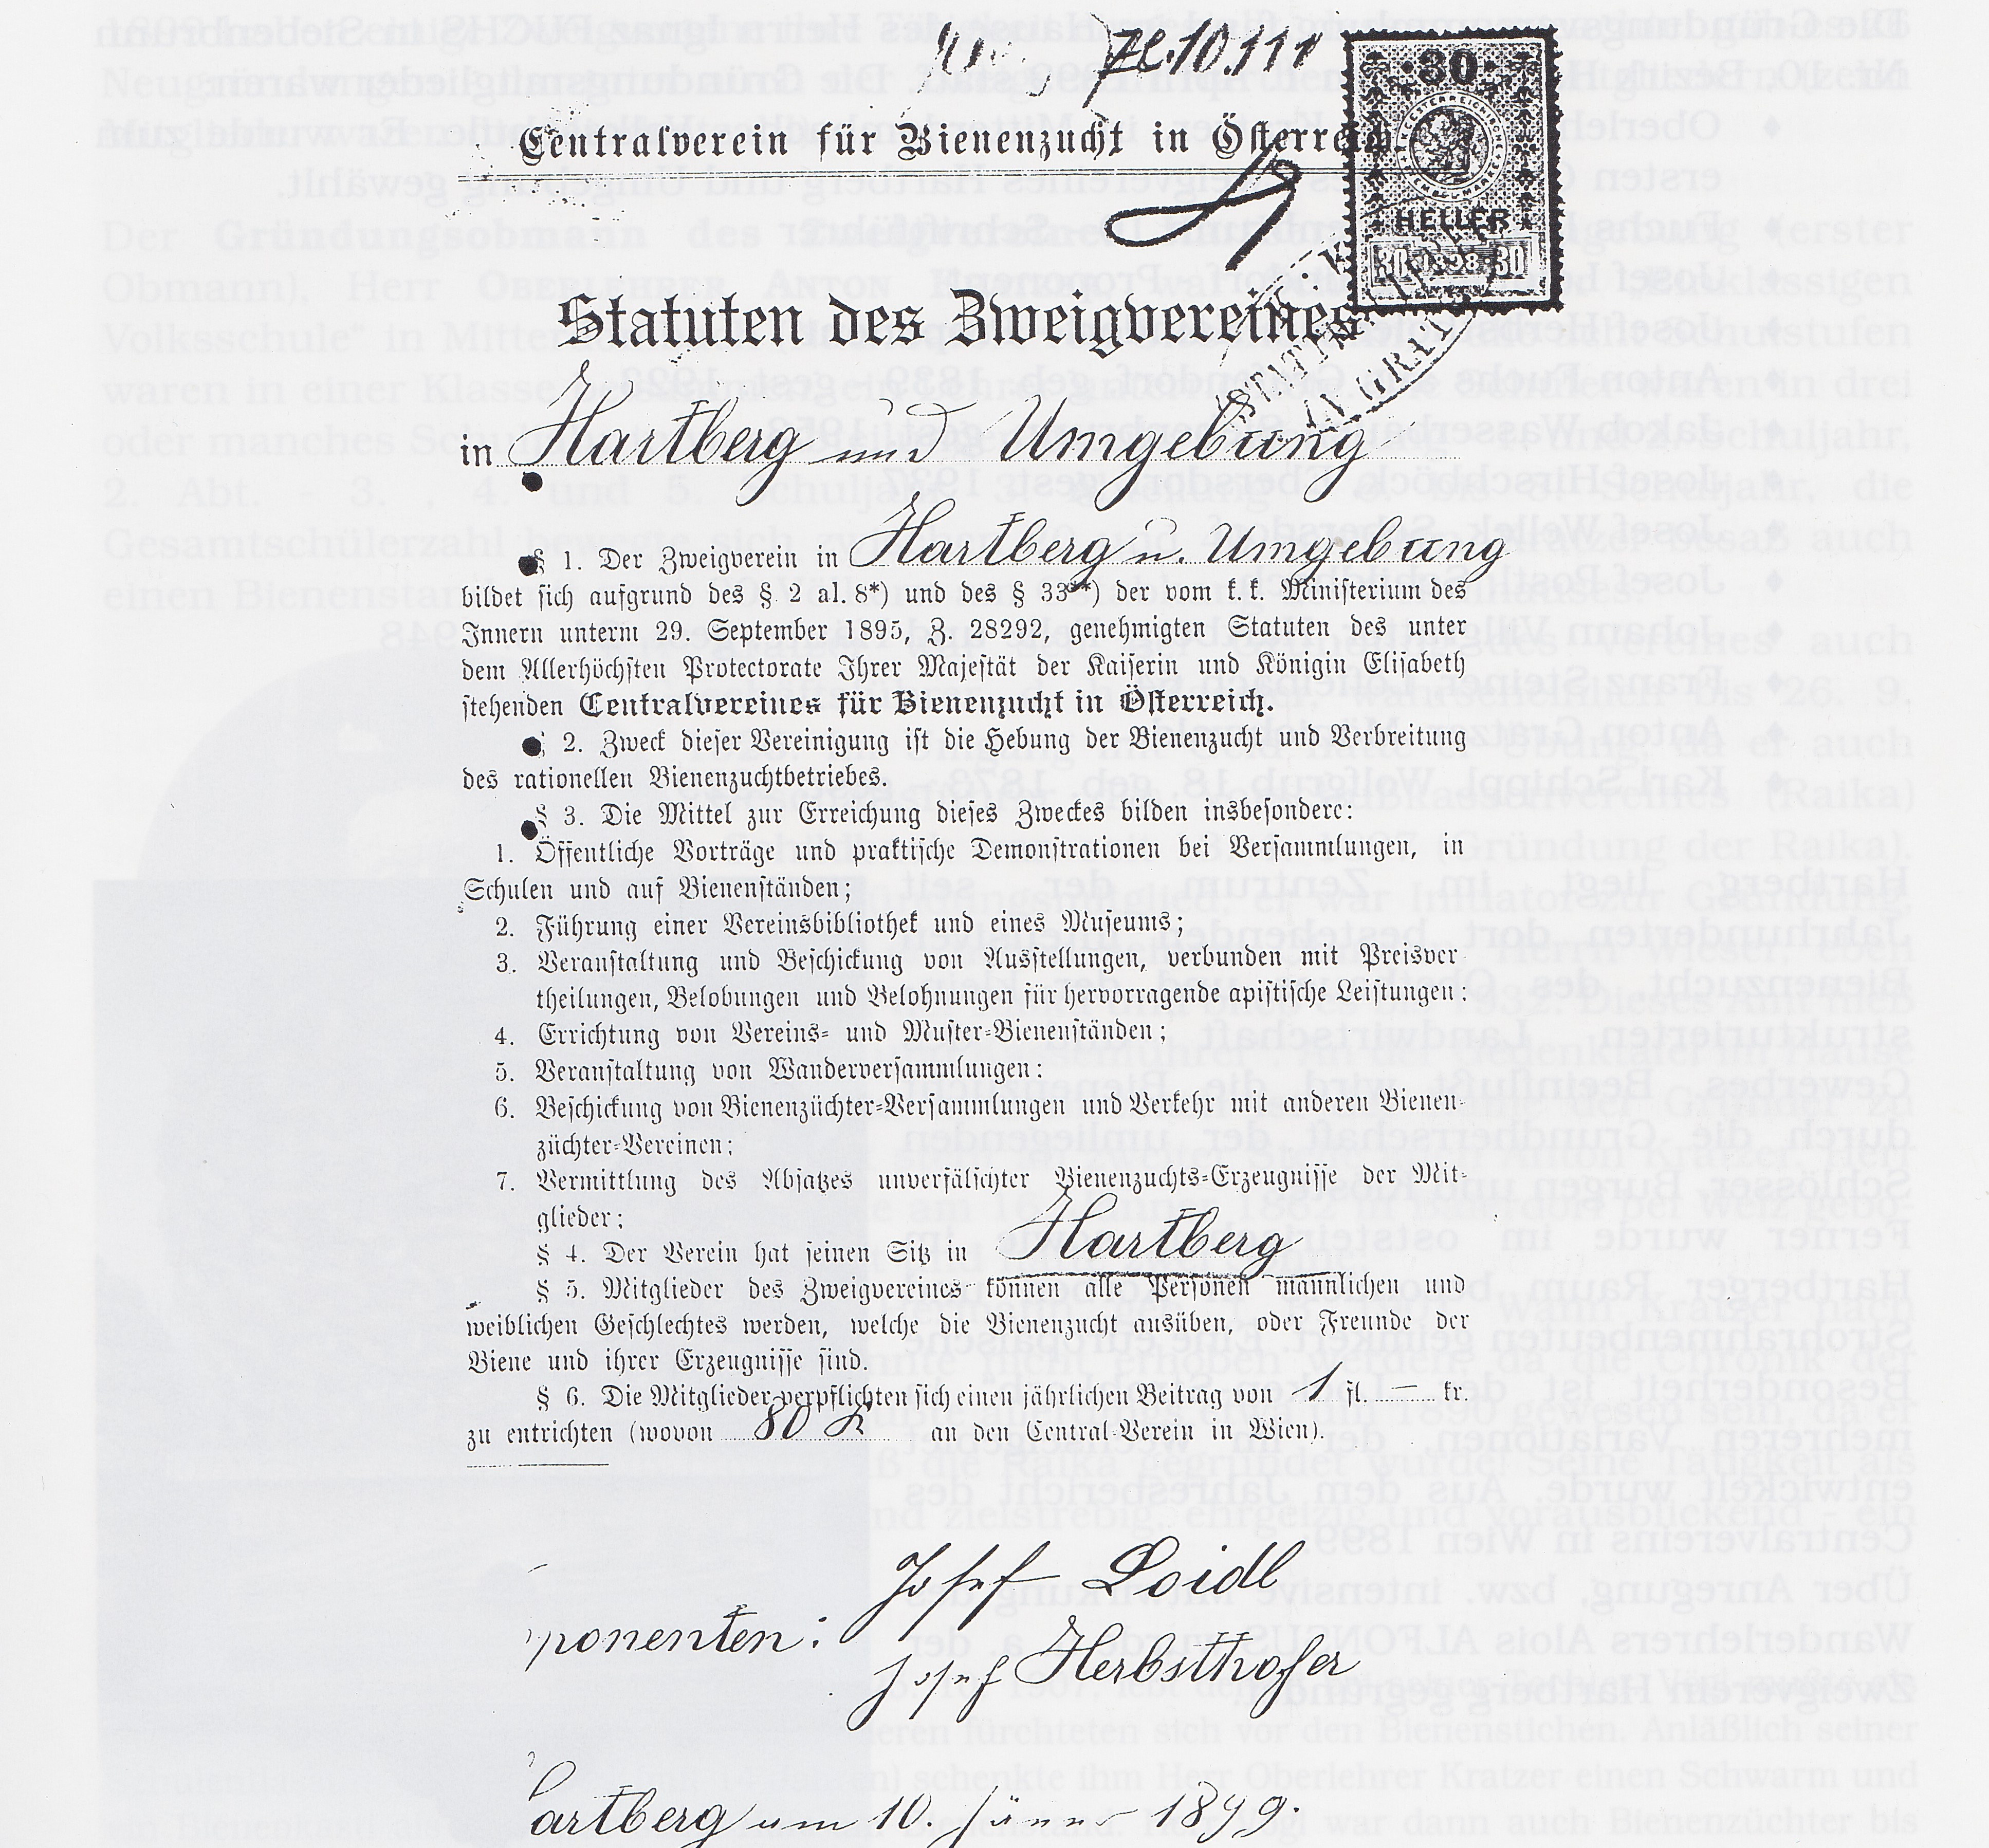 Zl. 10.111
Centralverein für Bienenzucht in Österreich.
30
HELLER
30 1898 30
Statuten des Zweigvereines
in Hartberg und Umgebung
§ 1. Der Zweigverein in Hartberg u. Umgebung
bildet sich aufgrund des § 2 al. 8*) und des § 33**) der vom k. k. Ministerium des
Innern unterm 29. September 1895, Z. 28292, genehmigten Statuten des unter
dem Allerhöchsten Protectorate Ihrer Majestät der Kaiserin und Königin Elisabeth
stehenden Centralvereines für Bienenzucht in Österreich.
§ 2. Zweck dieser Vereinigung ist die Hebung der Bienenzucht und Verbreitung
des rationellen Bienenzuchtbetriebes.
§ 3. Die Mittel zur Erreichung dieses Zweckes bilden insbesondere:
1. Öffentliche Vorträge und praktische Demonstrationen bei Versammlungen, in
Schulen und auf Bienenständen;
2. Führung einer Vereinsbibliothek und eines Museums;
3. Veranstaltung und Beschickung von Ausstellungen, verbunden mit Preisver-
theilungen, Belobungen und Belohnungen für hervorragende apistische Leistungen;
4. Errichtung von Vereins- und Muster-Bienenständen;
5. Veranstaltung von Wanderversammlungen;
6. Beschickung von Bienenzüchter-Versammlungen und Verkehr mit anderen Bienen-
züchter-Vereinen;
7. Vermittlung des Absatzes unverfälschter Bienenzuchts-Erzeugnisse der Mit-
glieder;
§ 4. Der Verein hat seinen Sitz in Hartberg
§ 5. Mitglieder des Zweigvereines können alle Personen männlichen und
weiblichen Geschlechtes werden, welche die Bienenzucht ausüben, oder Freunde der
Biene und ihrer Erzeugnisse sind.
§ 6. Die Mitglieder verpflichten sich einen jährlichen Beitrag von 1 fl. — kr.
zu entrichten (wovon 80 K an den Central-Verein in Wien).
Josef Loidl
ponenten:
Josef Herbsthofer
artberg am 10. Jänner 1899.